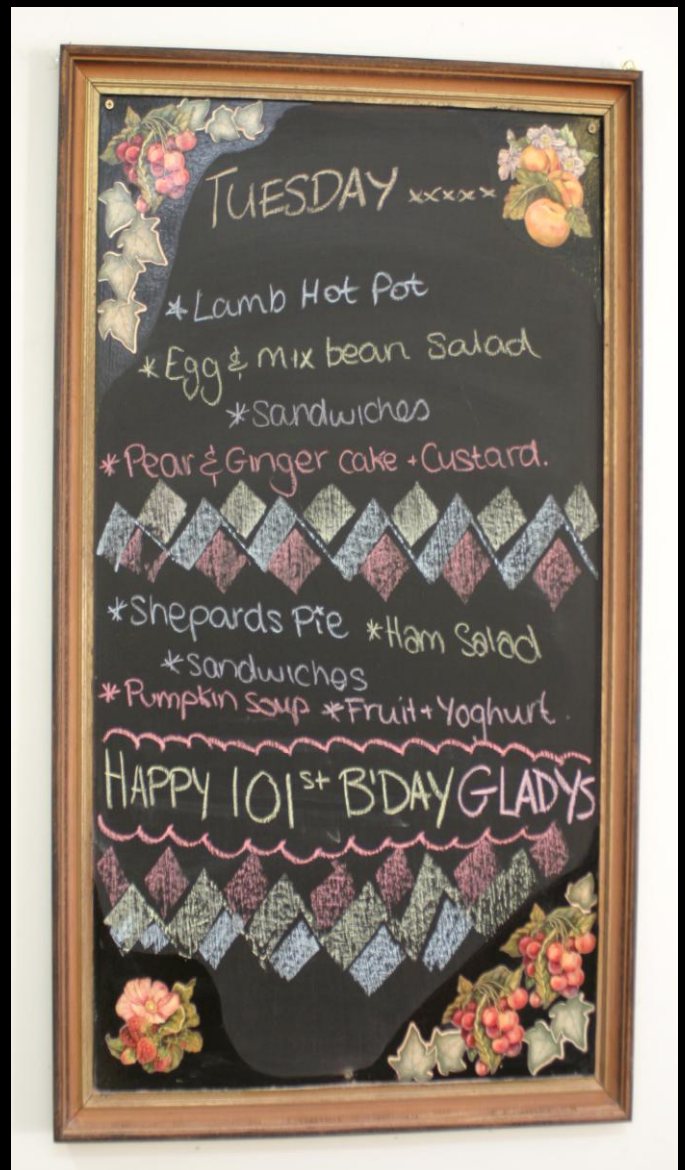 TUESDAY xxxxx
*Lamb Hot Pot
*Egg & mix bean Salad
*Sandwiches
*Pear & Ginger cake + Custard.
*Shepards Pie *Ham Salad
*Sandwiches
*Pumpkin Soup *Fruit + Yoghurt.
HAPPY 101st B'DAY GLADYS